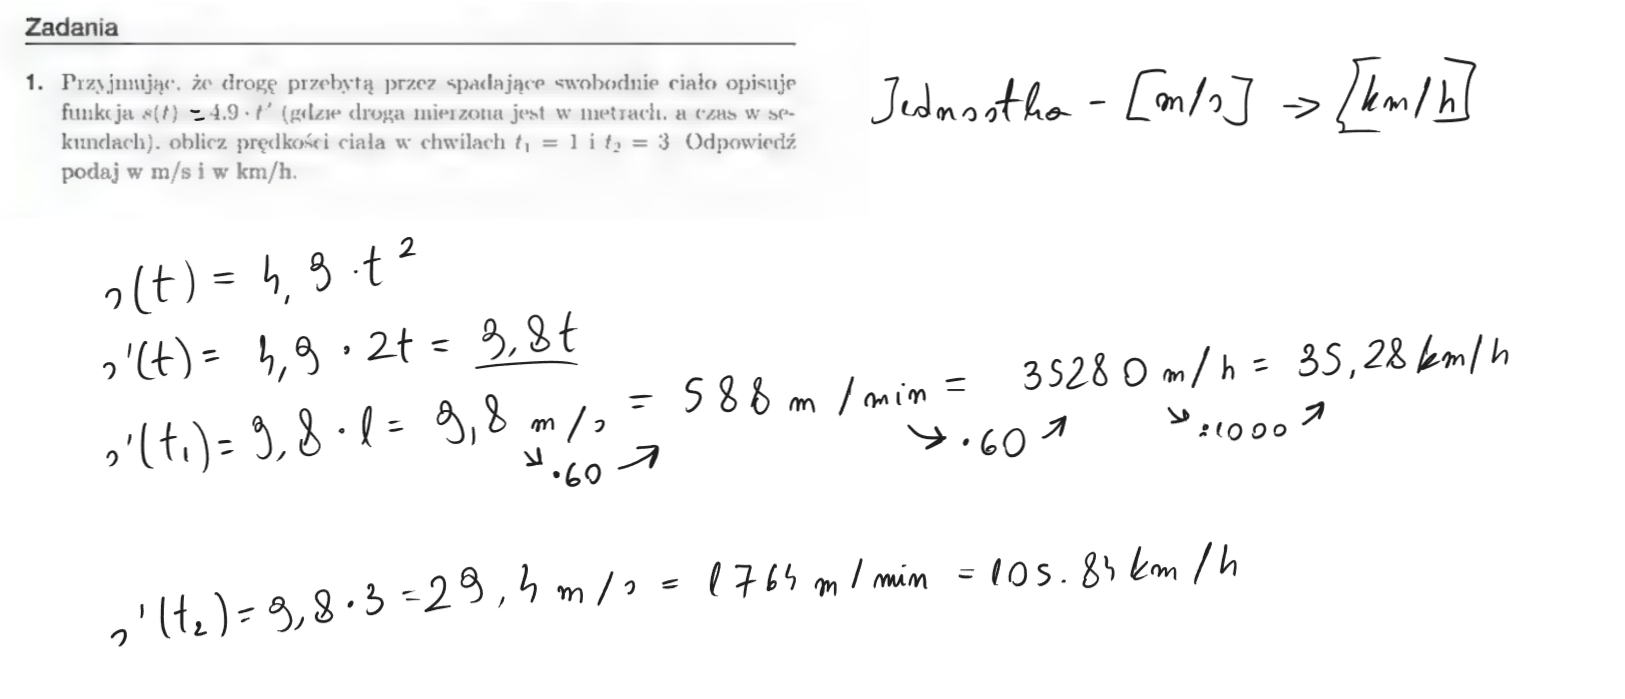 Zadania
1. Przyjmując, że drogę przebytą przez spadające swobodnie ciało opisuje
funkcja s(t) = 4.9 · t² (gdzie droga mierzona jest w metrach, a czas w se-
kundach), oblicz prędkości ciała w chwilach t₁ = 1 i t₂ = 3 Odpowiedź
podaj w m/s i w km/h.
Jednostka - [m/s] → [km/h]
s(t) = 4,9 · t²
s'(t) = 4,9 · 2t = 9,8t
s'(t₁) = 9,8 · 1 = 9,8 m/s = 588 m/min = 35280 m/h = 35,28 km/h
↘ ·60 ↗ ↘ ·60 ↗ ↘ :1000 ↗
s'(t₂) = 9,8 · 3 = 29,4 m/s = 1764 m/min = 105.84 km/h